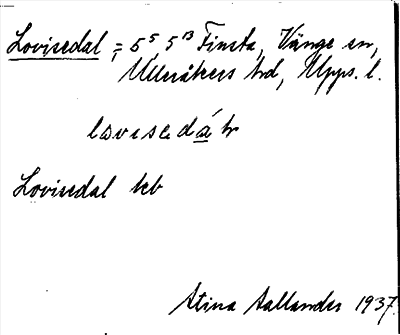 Lovisedal, = 5⁵, 5¹³ Finsta, Vänge sn,
Ulleråkers hd, Upps. l.
lovisedá
Lovisedal
Stina Hallander 1937.